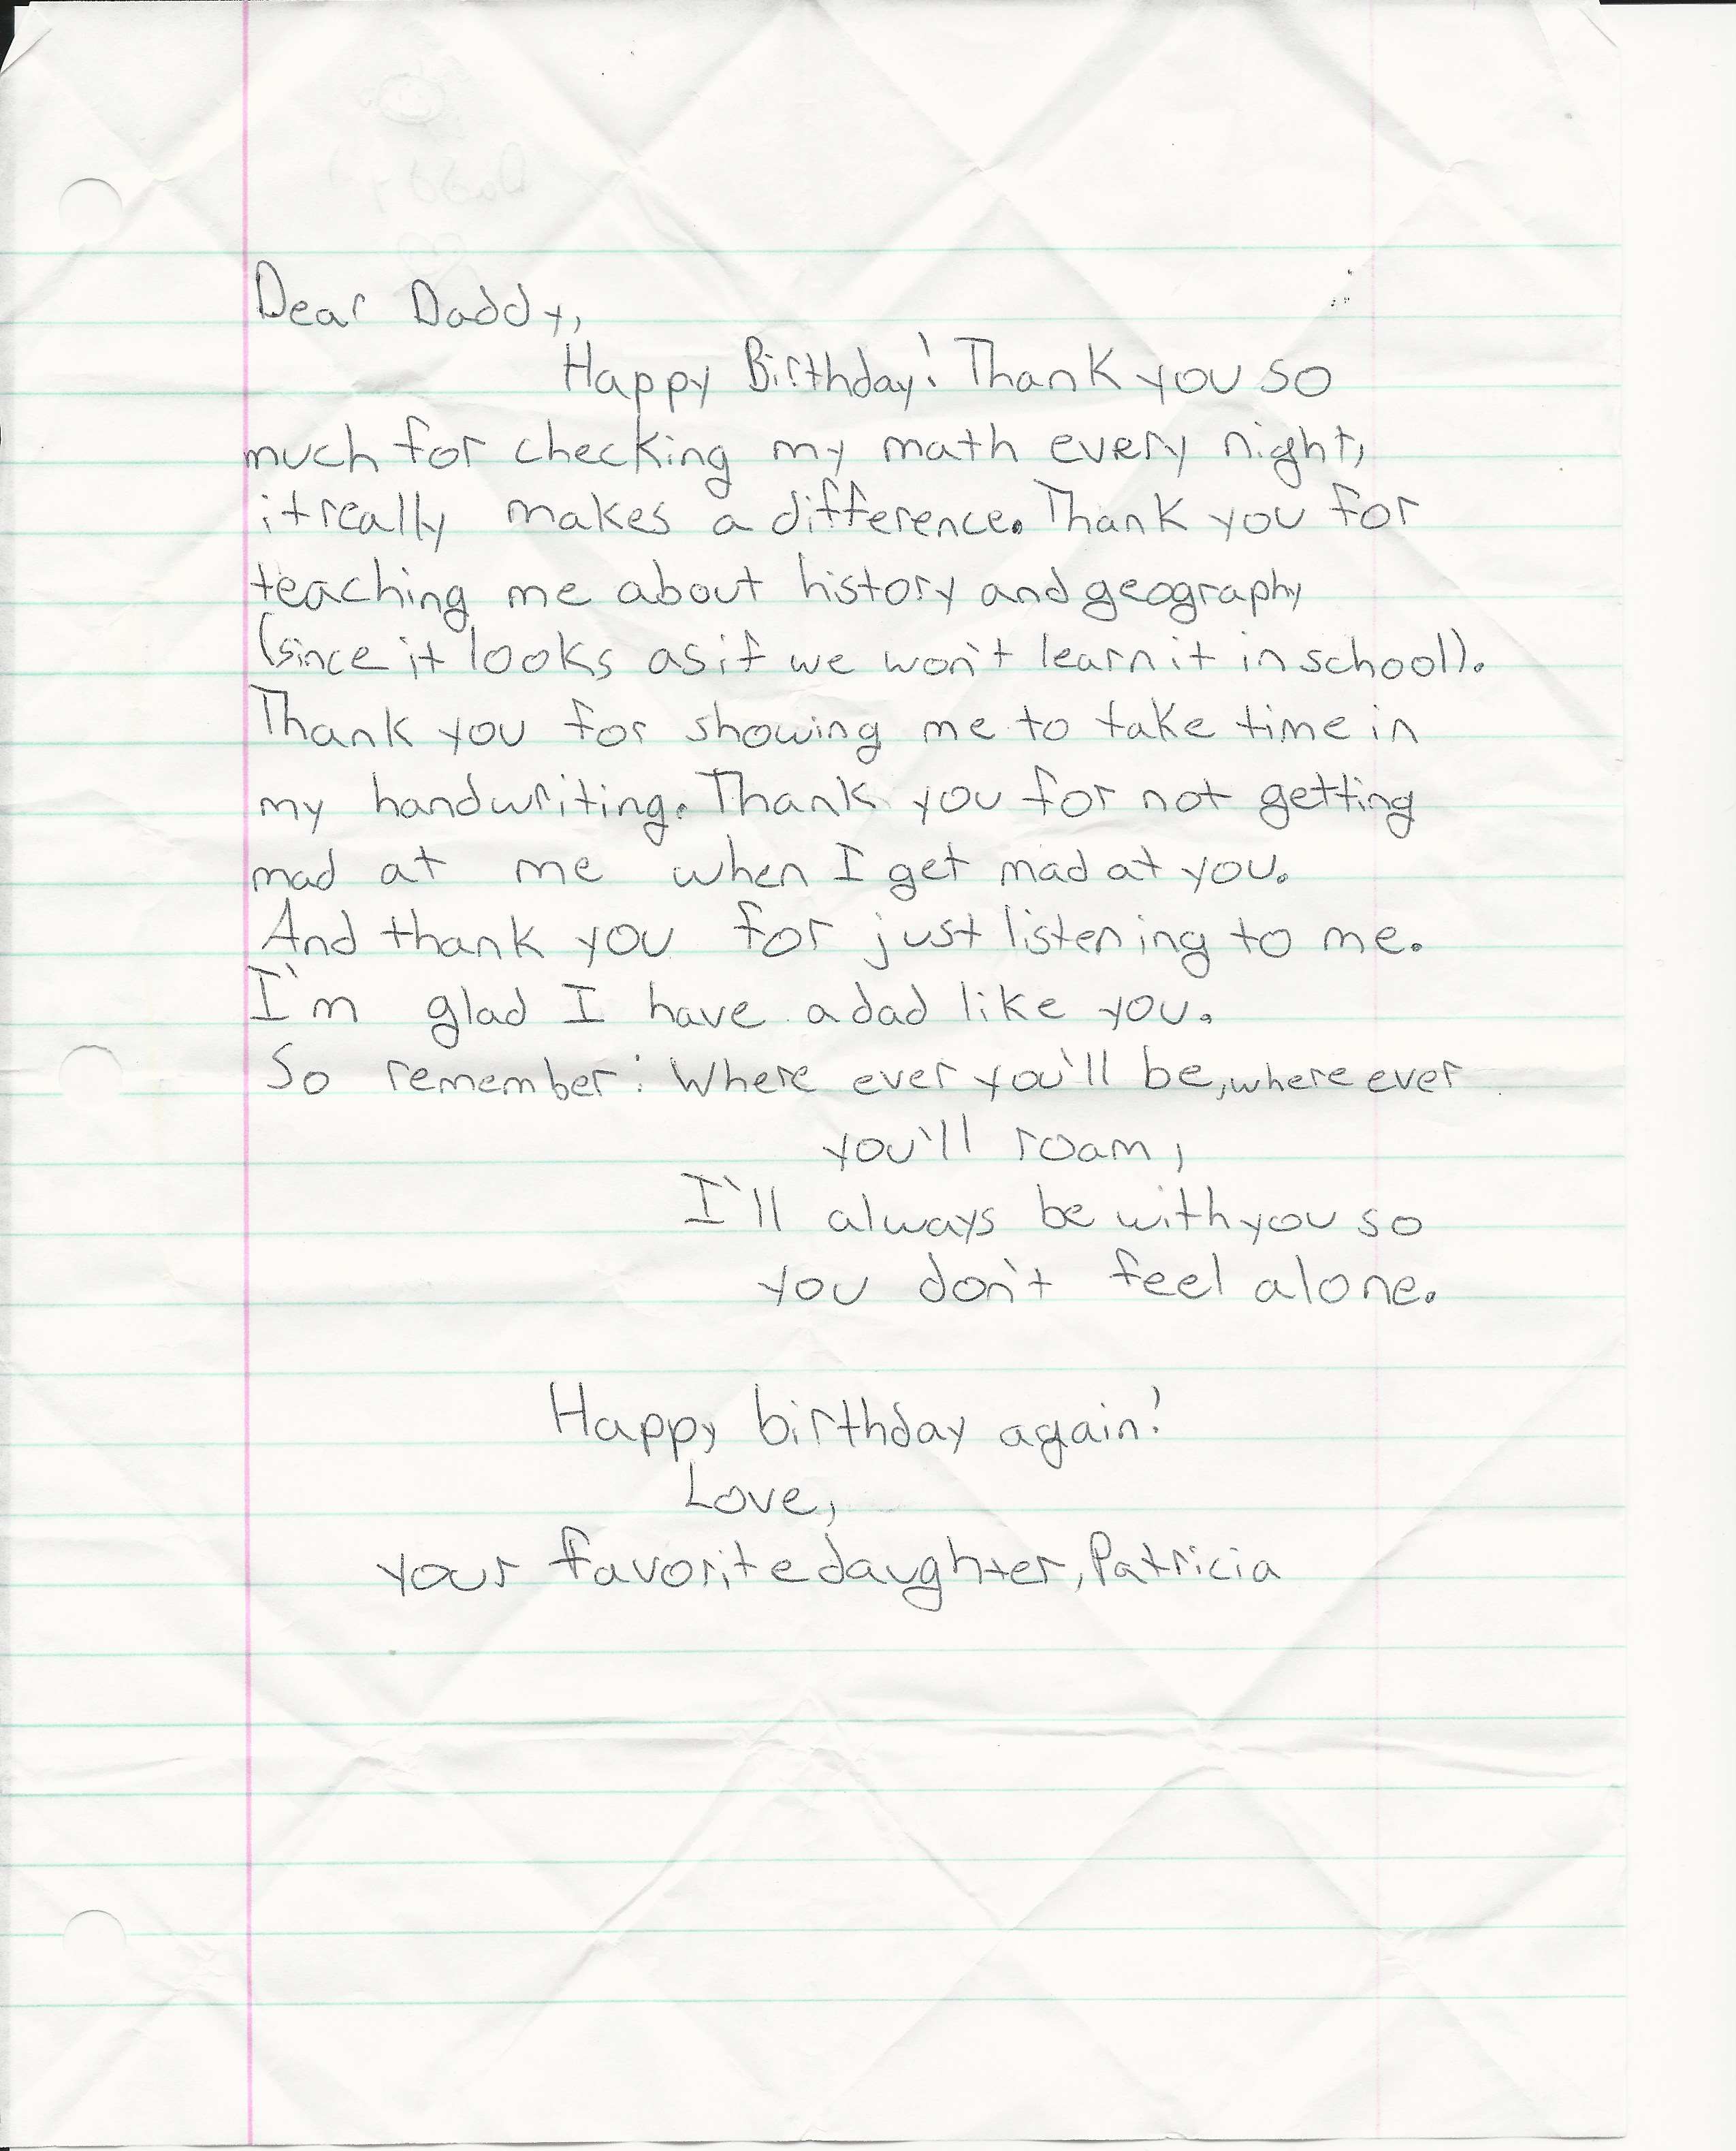 Dear Daddy,
Happy Birthday! Thank you so
much for checking my math every night,
it really makes a difference. Thank you for
teaching me about history and geography
(since it looks as if we won't learn it in school).
Thank you for showing me to take time in
my handwriting. Thank you for not getting
mad at me when I get mad at you.
And thank you for just listening to me.
I'm glad I have a dad like you.
So remember: Where ever you'll be, where ever
you'll roam,
I'll always be with you so
you don't feel alone.
Happy birthday again!
Love,
your favorite daughter, Patricia